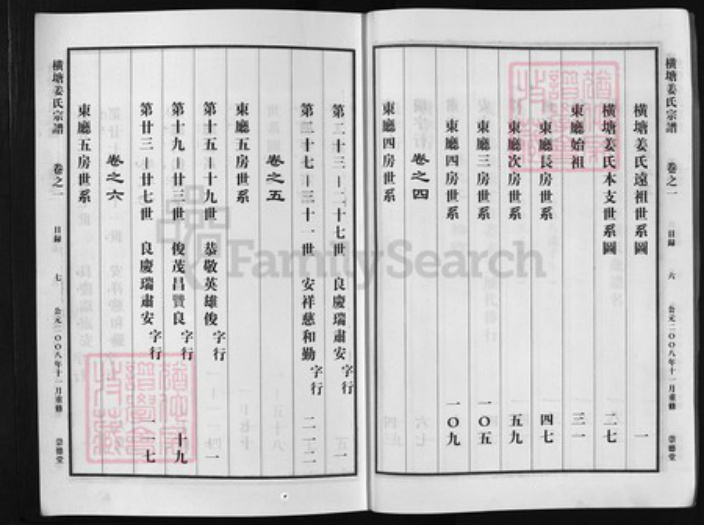 橫塘姜氏宗譜 卷之一 目錄 六 公元二〇〇八年十一月重修 崇德堂
橫塘姜氏遠祖世系圖 一
橫塘姜氏本支世系圖 二七
東廳始祖 三一
東廳長房世系 四七
東廳次房世系 五九
東廳三房世系 一〇五
東廳四房世系 一〇九
卷之四
東廳四房世系
第二十三－二十七世 良慶瑞肅安字行 一
第二十七－三十一世 安祥慈和勤字行
卷之五
東廳五房世系
第十五－十九世 恭敬英雄俊字行 一
第十九－廿三世 俊茂昌贊良字行 十九
第廿三－廿七世 良慶瑞肅安字行 一七
卷之六
東廳五房世系
橫塘姜氏宗譜 卷之一 目錄 七 公元二〇〇八年十一月重修 崇德堂
FamilySearch